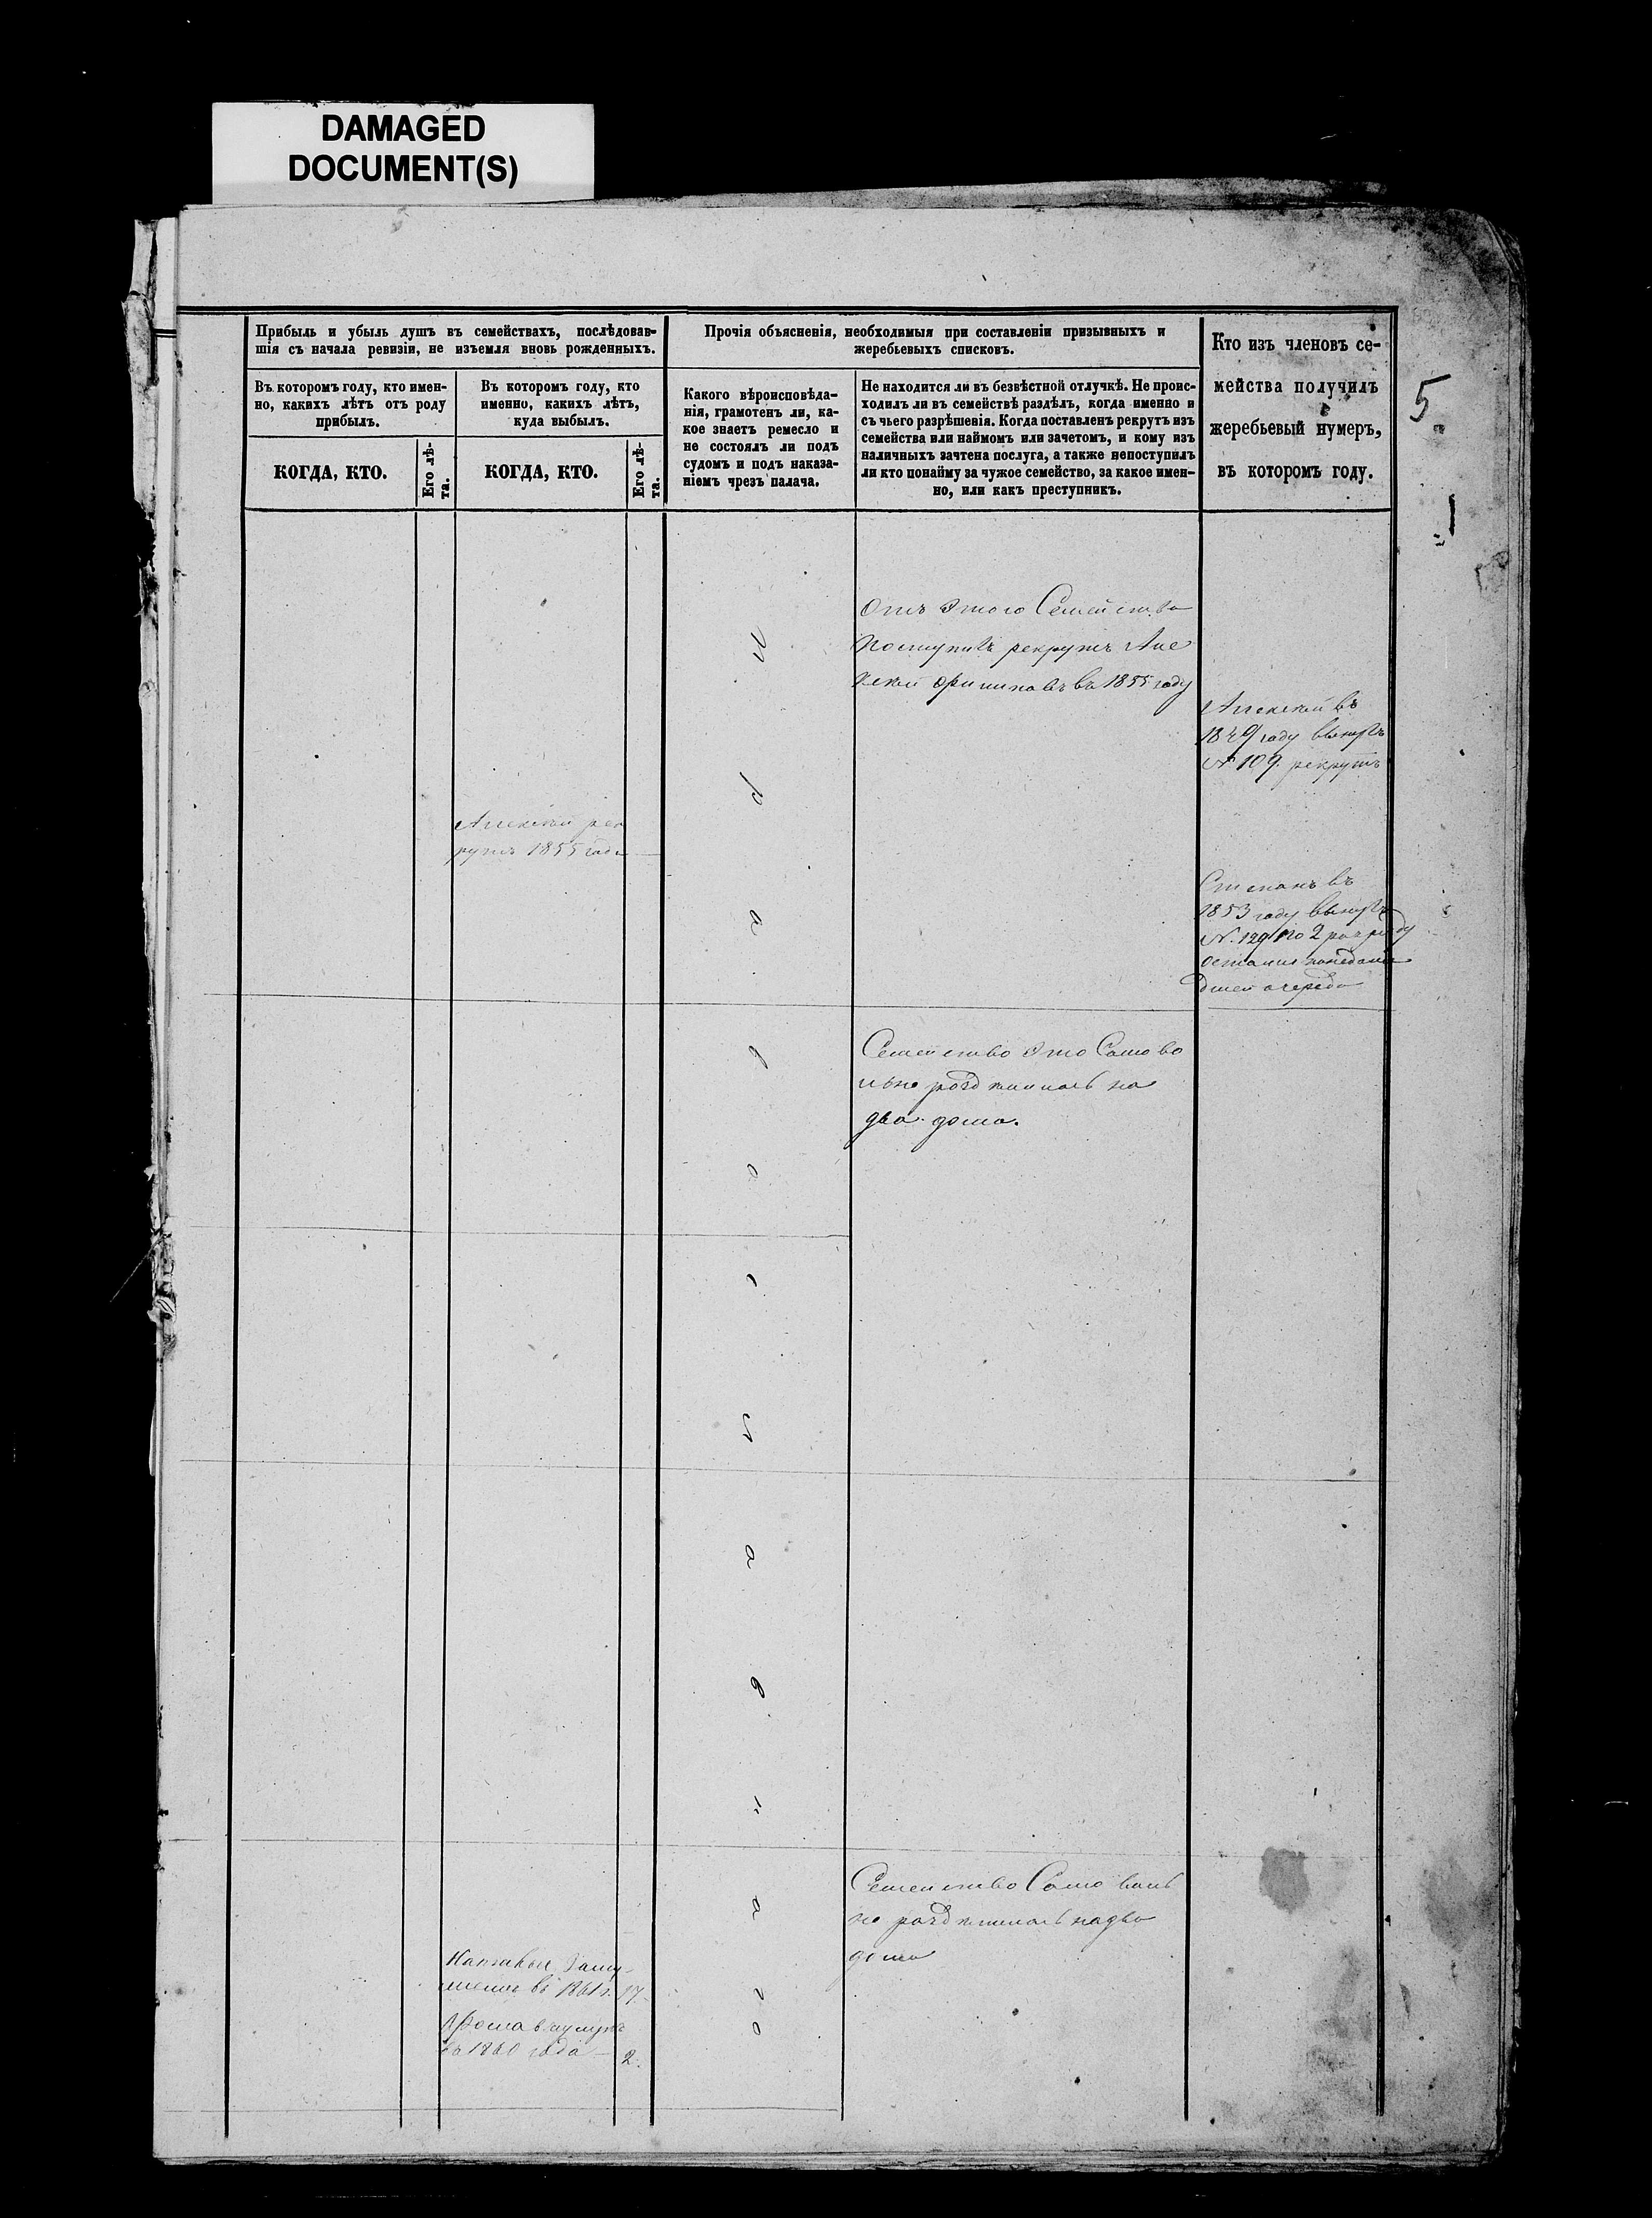 DAMAGED
DOCUMENT(S)
Прибыль и убыль душъ въ семействахъ, послѣдовав-
шія съ начала ревизіи, не изъемля вновь рожденныхъ.
Въ которомъ году, кто имен-
но, какихъ лѣтъ отъ роду
прибылъ.
КОГДА, КТО.
Его лѣ-
та.
Въ которомъ году, кто
именно, какихъ лѣтъ,
куда выбылъ.
КОГДА, КТО.
Его лѣ-
та.
Прочія объясненія, необходимыя при составленіи призывныхъ и
жеребьевыхъ списковъ.
Какого вѣроисповѣда-
нія, грамотенъ ли, ка-
кое знаетъ ремесло и
не состоялъ ли подъ
судомъ и подъ наказа-
ніемъ чрезъ палача.
Не находится ли въ безвѣстной отлучкѣ. Не проис-
ходилъ ли въ семействѣ раздѣлъ, когда именно и
съ чьего разрѣшенія. Когда поставленъ рекрутъ изъ
семейства или наймомъ или зачетомъ, и кому изъ
наличныхъ зачтена послуга, а также непоступилъ
ли кто понайму за чужое семейство, за какое имен-
но, или какъ преступникъ.
Кто изъ членовъ се-
мейства получилъ
жеребьевый нумеръ,
въ которомъ году.
5
Отъ этого Семейства
поступилъ рекрутъ Але
ксей Филиповъ въ 1855 году
Алексей въ
1849 году вынулъ
№ 109. рекрутъ
Алексей рек
рутъ 1855 года
Степанъ въ
1853 году вынулъ
№. 129 по 2 разряду
очереди
П
р
а
в
о
с
л
а
в
н
а
г
о
Семейство это Самово
льно раздѣлилось на
два дома.
Семейство Самоволь
но раздѣлилось на два
дома
въ 1861 г. 17.
Фома умеръ
въ 1860 года — 2.